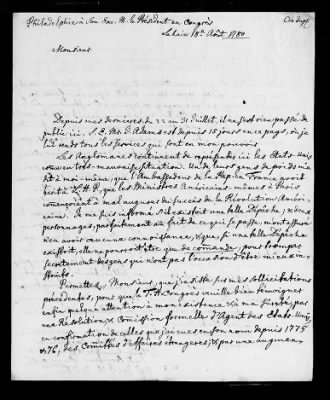 Philadelphie à Son Exc. M. le Président en Congrès
La haie 18e. Août 1780
Monsieur
Depuis mes dernieres, du 22 au 31 Juillet, il ne s'est rien passé de
public ici. S. E. Mr. J. Adams est depuis 15 jours en ce pays, où je
lui rends tous les services qui sont en mon pouvoir.
Les Anglomanes continuent de représenter ici les Etats-unis
comme en très-mauvaise situation. Un de leurs gens de poids m'a
dit à moi-même, que l'Ambassadeur de la Rep. en France avoit
écrit à L. H. P. que les Ministres Américains-mêmes à Paris
commençoient à mal augurer du succès de la Révolution Améri-
caine. Je me suis informé s'il existoit une telle Dépêche; mais un
personnage, parfaitement au fait de ce qui se passe, m'a assuré
n'en avoir aucune connoissance; & que, si une telle Dépêche
existoit, elle ne pouvoit être que de commande, pour tromper
secretement des gens qui n'ont pas l'occasion d'être mieux in-
struits.
Permettez, Monsieur, que j'insiste sur mes sollicitations
précédentes, pour que le T. H. Congrès veuille bien donner
enfin quelque attention à mon existence, & à me fixer, par
une Résolution, & Commission formelle d'Agent des Etats-Unis,
en confirmation de celles que j'ai eues en son nom depuis 1775
& 76, des Comittés d'affaires étrangeres, & par une augmen-